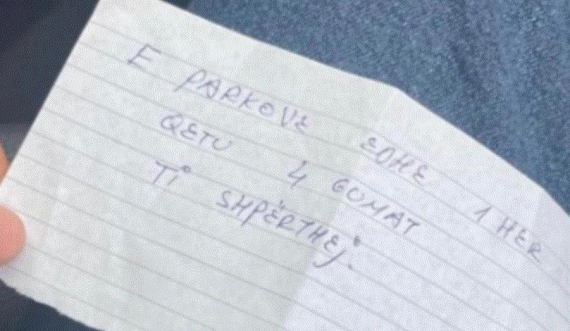 E PARKOVE EDHE 1 HER
QETU 4 GOMAT
Ti SHPËRTHEJ.